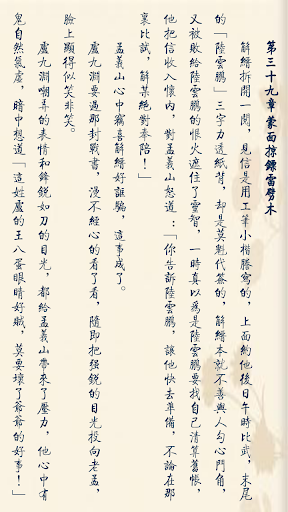 第三十九章蒙面掠鏢雷劈木
解縉拆開一閱，見信是用工筆小楷謄寫的，上面約他後日午時比武，末尾
的「陸雲鵬」三字力透紙背，却是莫魁代簽的，解縉本就不善與人勾心鬥角，
又被敗給陸雲鵬的恨火遮住了靈智，一時真以爲是陸雲鵬要找自己清算舊賬，
他把信收入懷內，對孟義山怒道：「你告訴陸雲鵬，讓他快去準備，不論在那
裏比試，解某絕對奉陪！」
孟義山心中竊喜解縉好誆騙，這事成了。
盧九淵要過那封戰書，漫不經心的看了看，隨即把强銳的目光投向老孟，
臉上顯得似笑非笑。
盧九淵嘲弄的表情和鋒銳如刀的目光，都給孟義山帶來了壓力，他心中有
鬼自然氣虛，暗中想道「這姓盧的王八蛋眼睛好賊，莫要壞了爺爺的好事！」